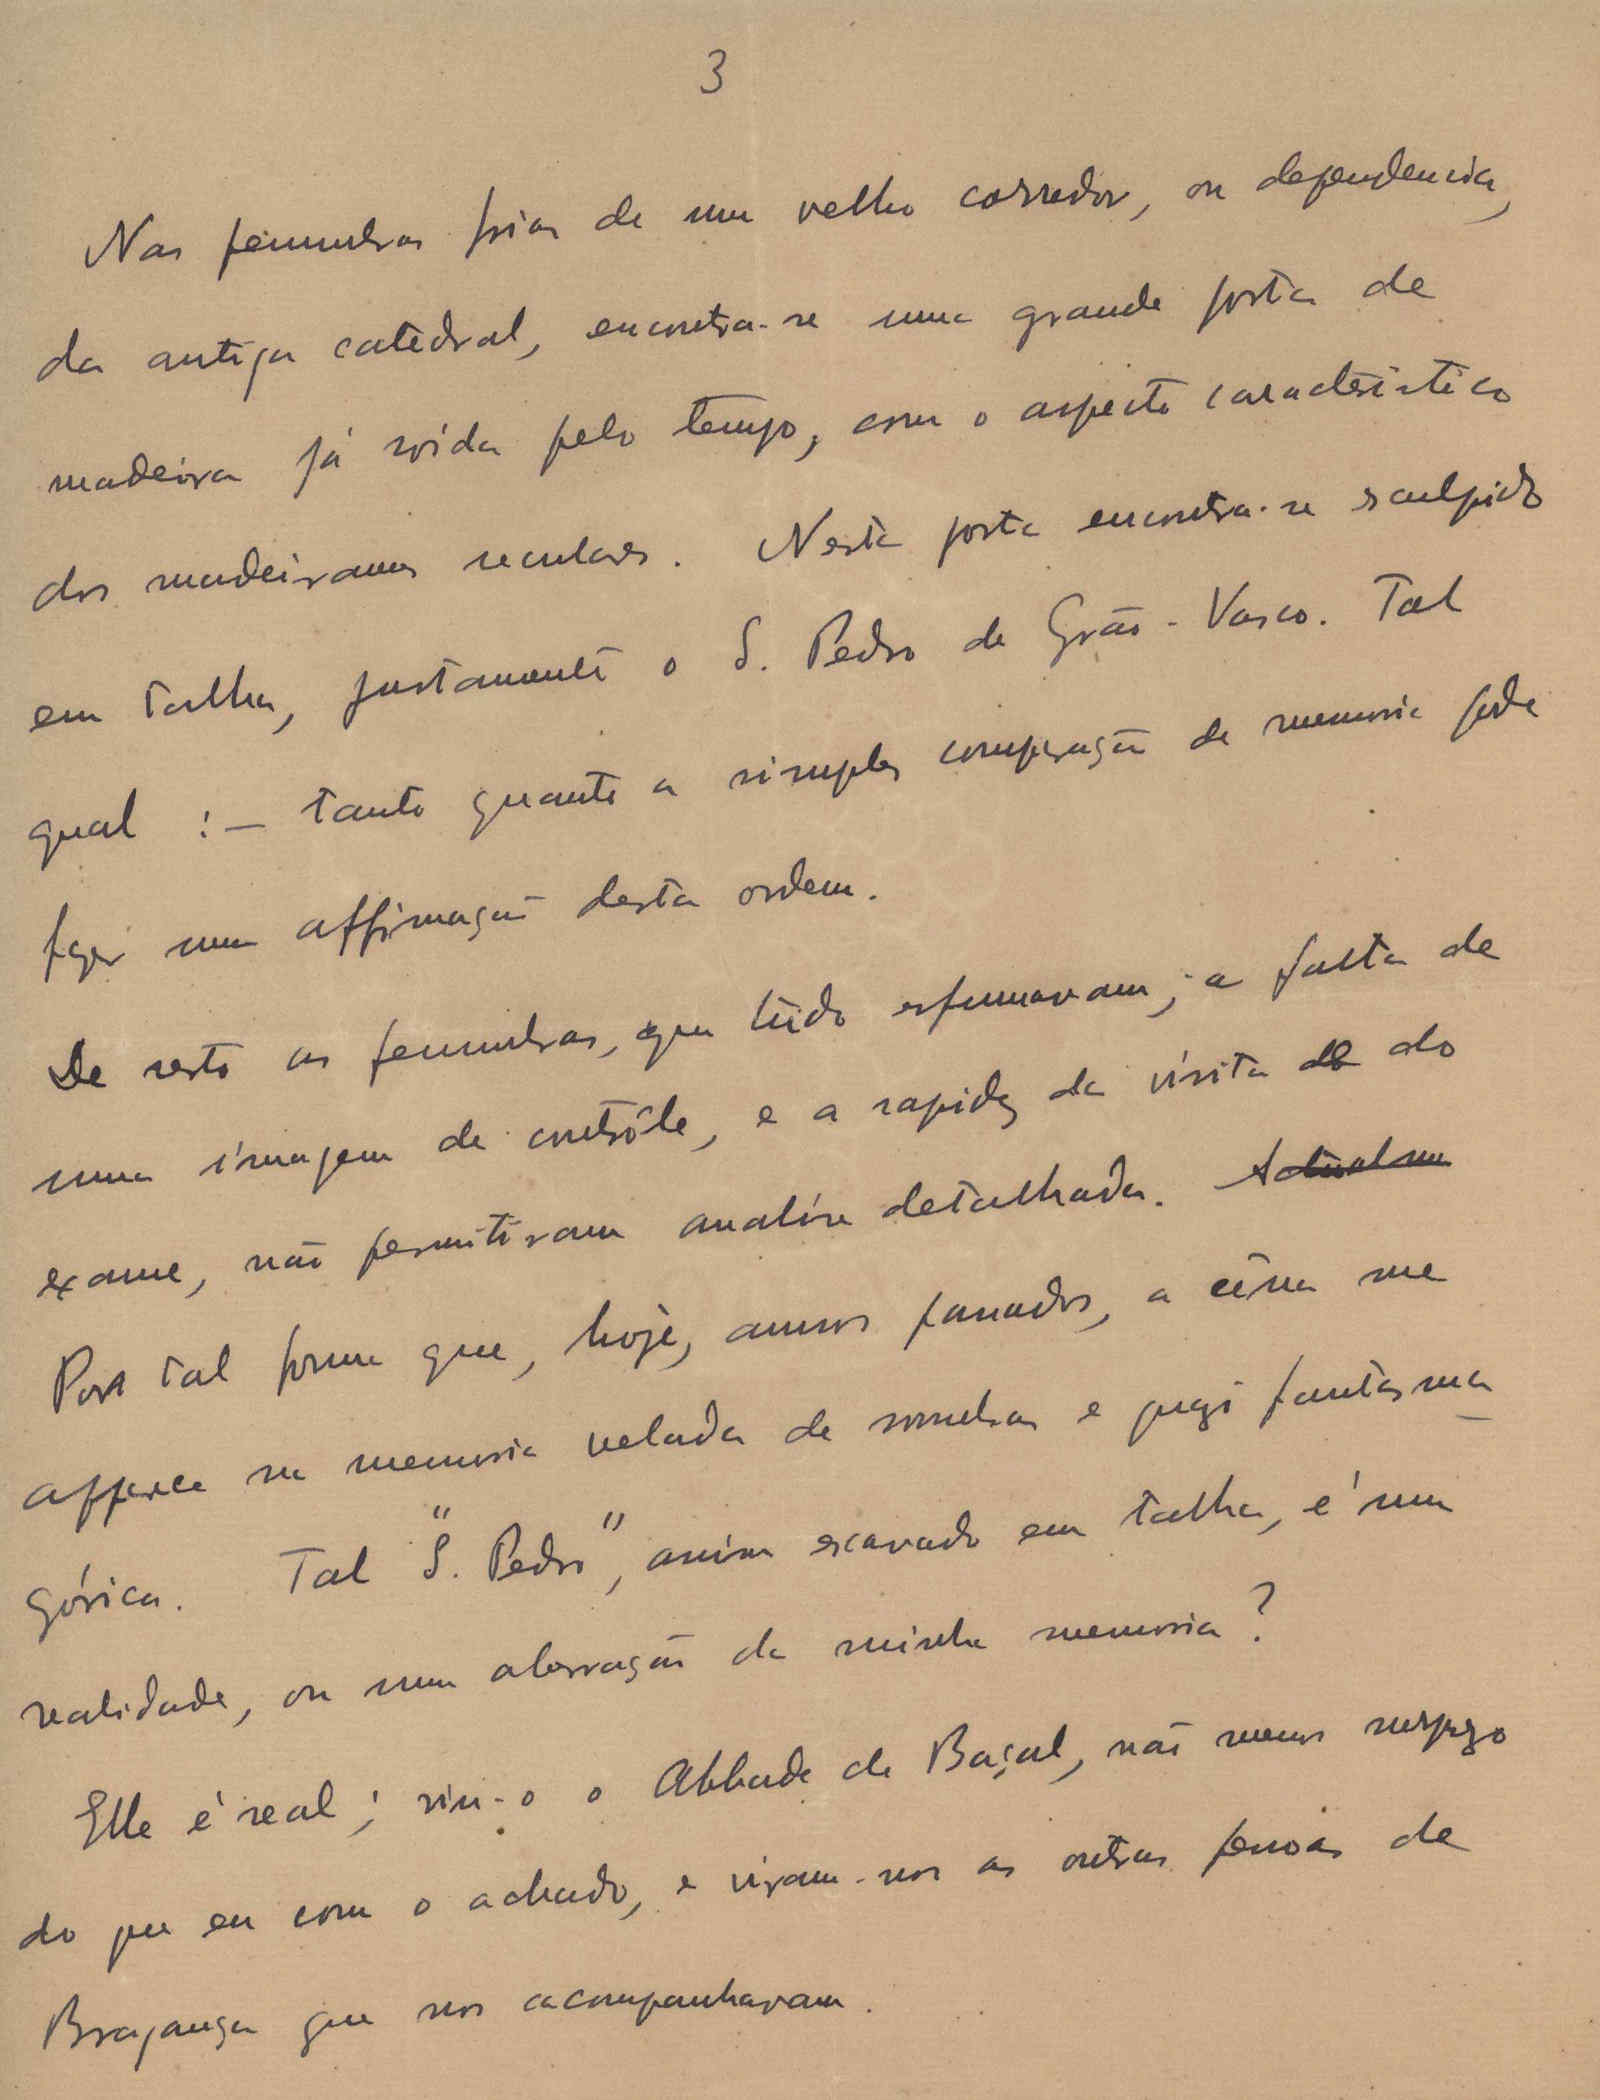 3
Nas penumbras frias de um velho corredor, ou dependencia,
da antiga catedral, encontra-se uma grande porta de
madeira já roída pelo tempo, com o aspecto característico
dos madeirames seculares. Nesta porta encontra-se esculpido
em talha, justamente o S. Pedro de Grão-Vasco. Tal
qual :— tanto quanto a simples comparação de memoria pode
fazer uma affirmação desta ordem.
De resto as penumbras, que tudo esfumavam; a falta de
uma imagem de contrôle, e a rapidez da visita e do
exame, não permitiram analise detalhada. Actualme
Por tal forma que, hoje, annos passados, a cêna me
apparece na memoria velada de sombras e quasi fantasma_
górica. Tal "S. Pedro", assim escavado em talha, é uma
realidade, ou uma aberração da minha memoria?
Elle é real; viu-o o Abbade de Baçal, não menos surprezo
do que eu com o achado, e viram-no as outras pessoas de
Bragança que nos acompanhavam.